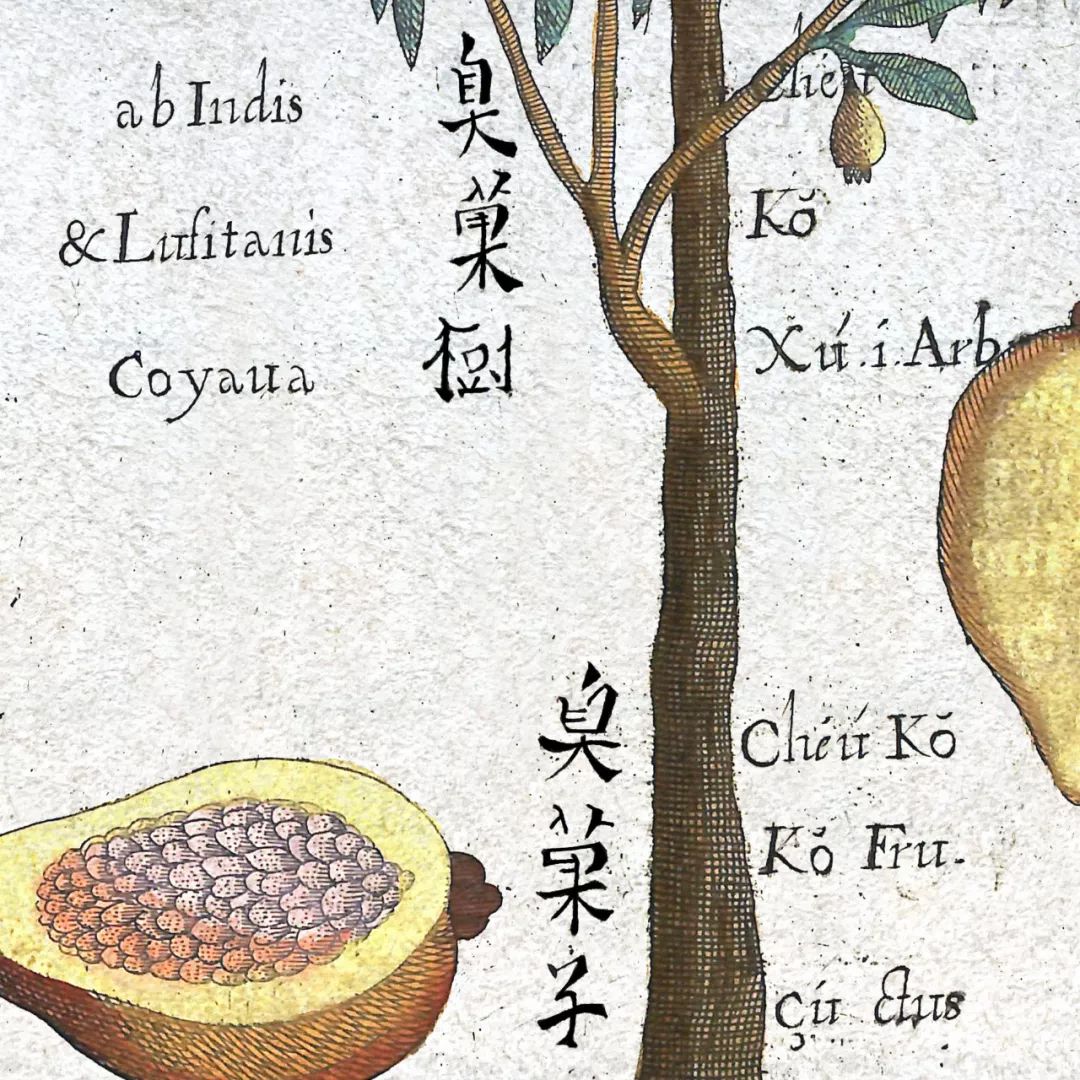 ab Indis
& Luſitanis
Coyaua
臭菓樹
Chéu
Kŏ
Xú .i. Arb
臭菓子
Chéú Kŏ
Kŏ Fru.
çú ctus